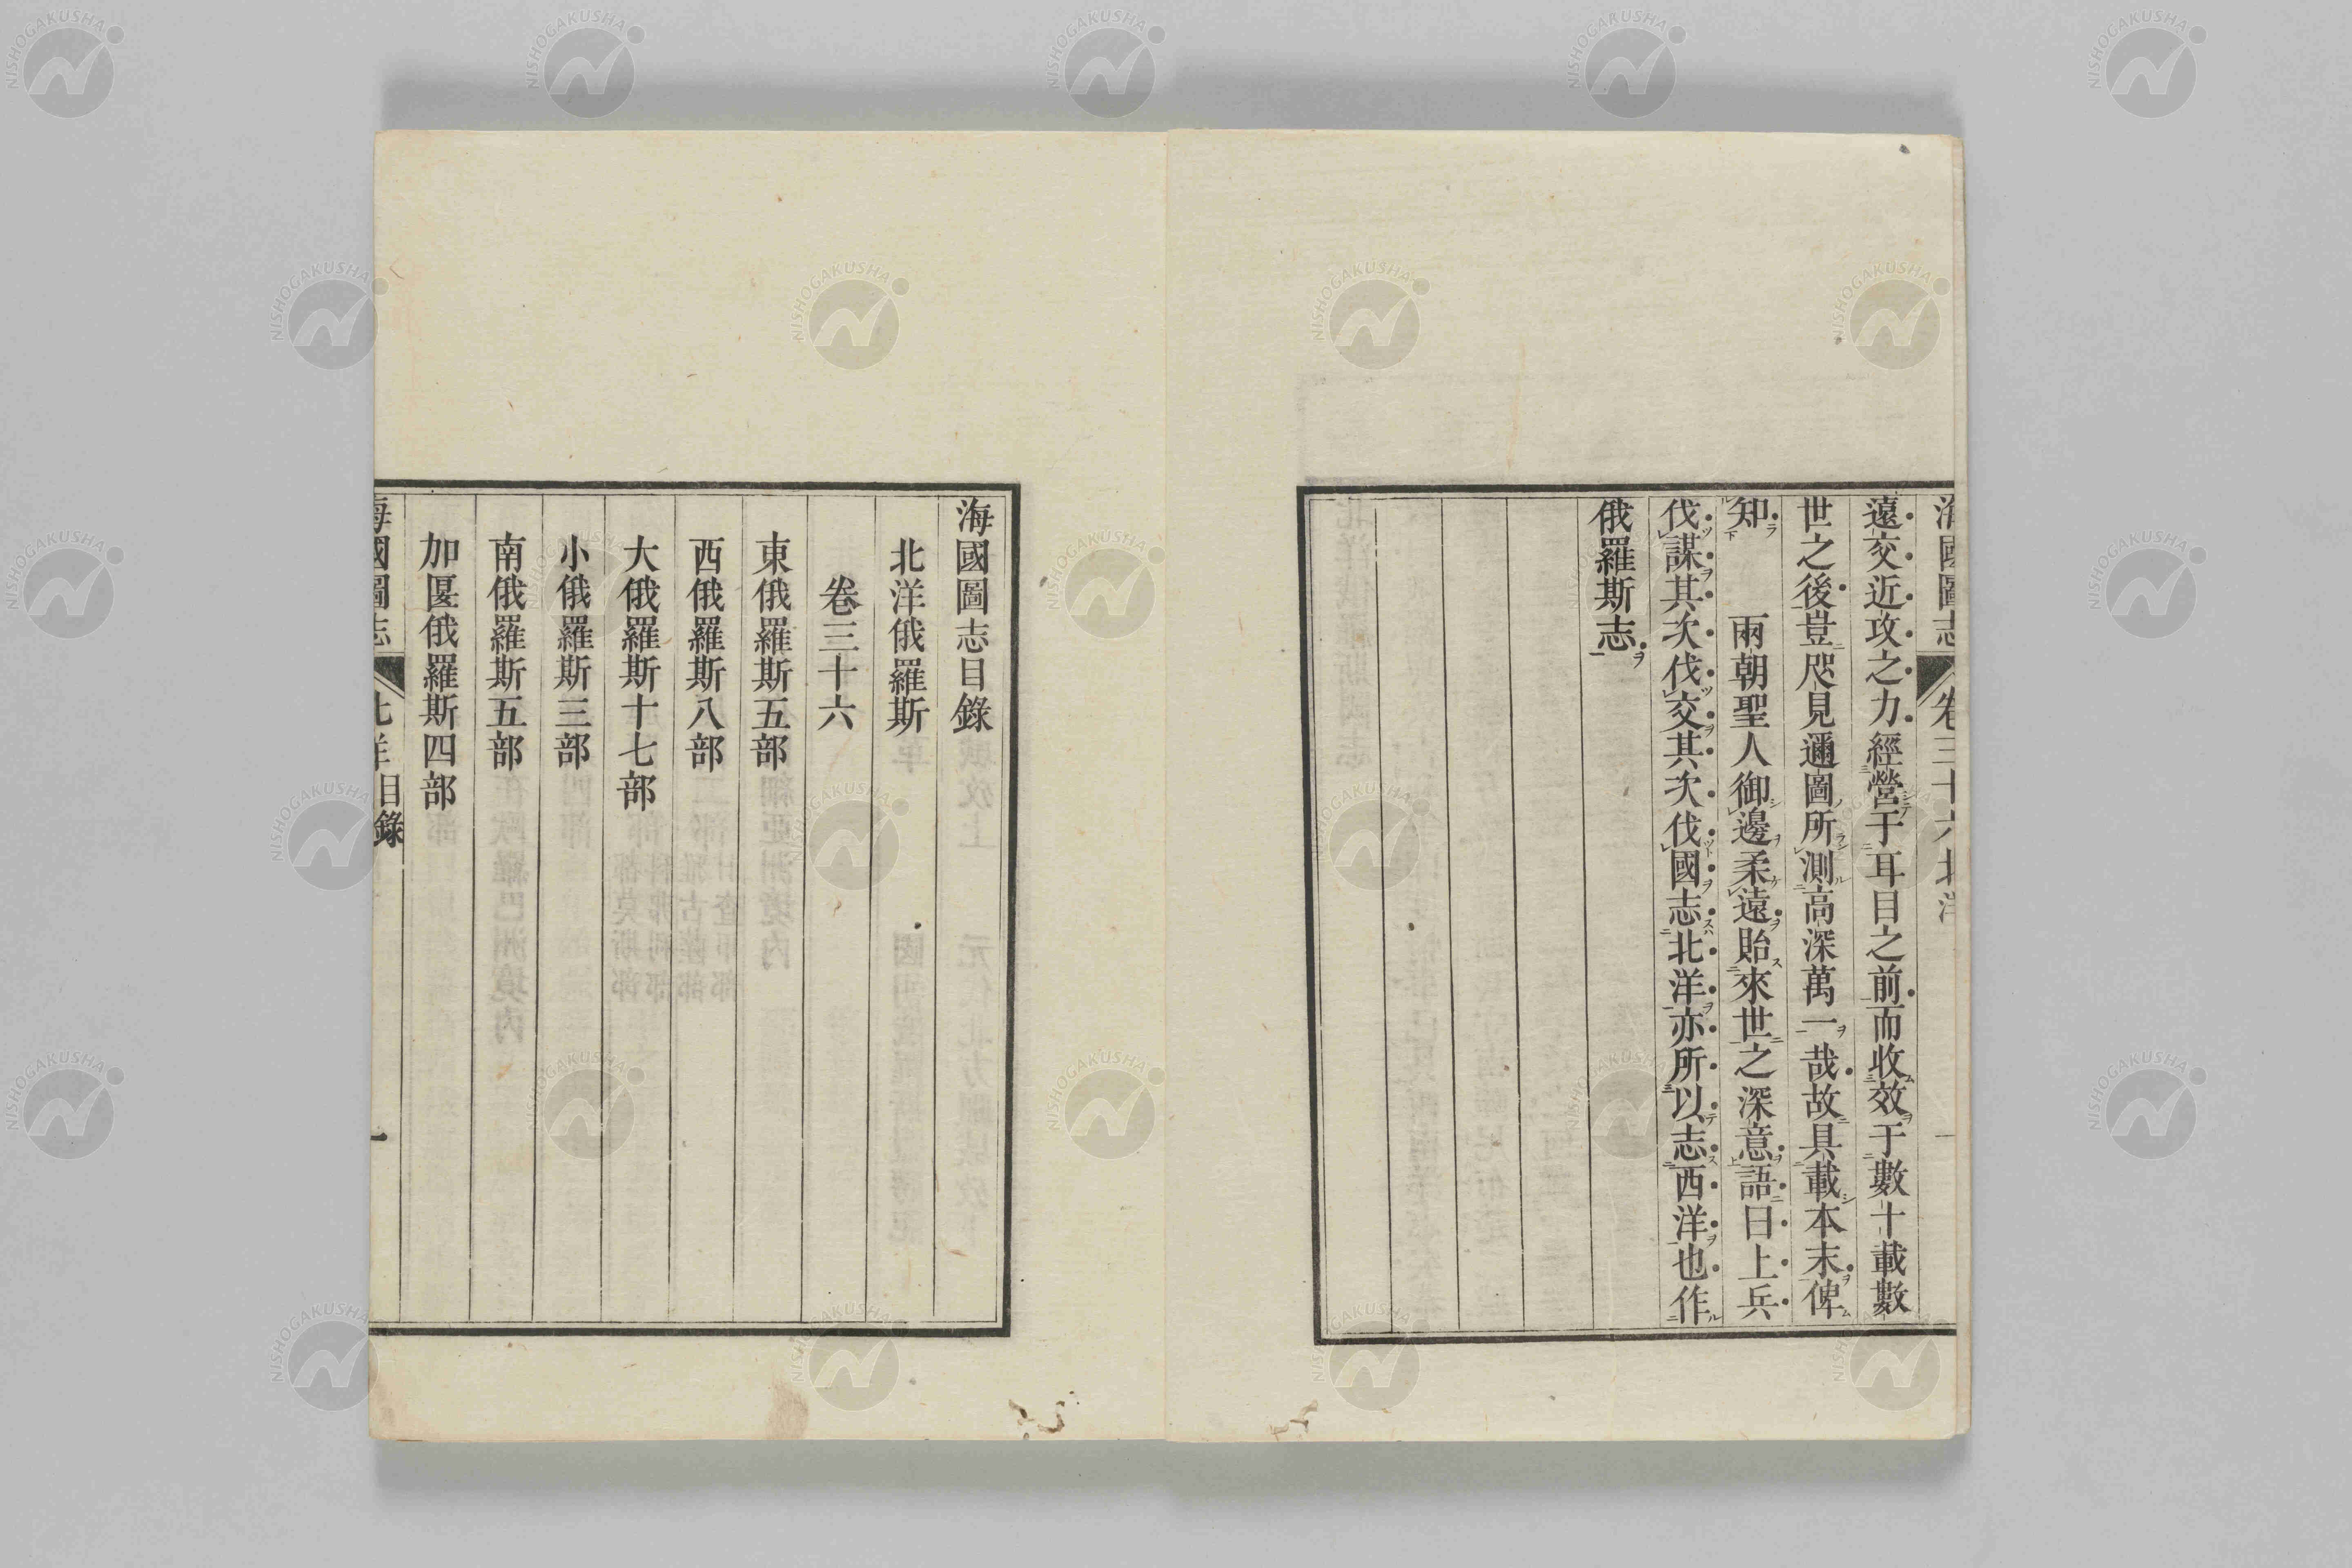 海國圖志 卷三十六北洋
遠交近攻之力經營于耳目之前而收效于數十載數
世之後豈咫見邇圖所測高深萬一哉故具載本末俾
知 兩朝聖人御邊柔遠貽來世之深意語曰上兵
伐謀其次伐交其次伐國志北洋亦所以志西洋也作
俄羅斯志
海國圖志目錄
北洋俄羅斯
卷三十六
東俄羅斯五部
西俄羅斯八部
大俄羅斯十七部
小俄羅斯三部
南俄羅斯五部
加匽俄羅斯四部
海國圖志 北洋目錄 一
NISHOGAKUSHA